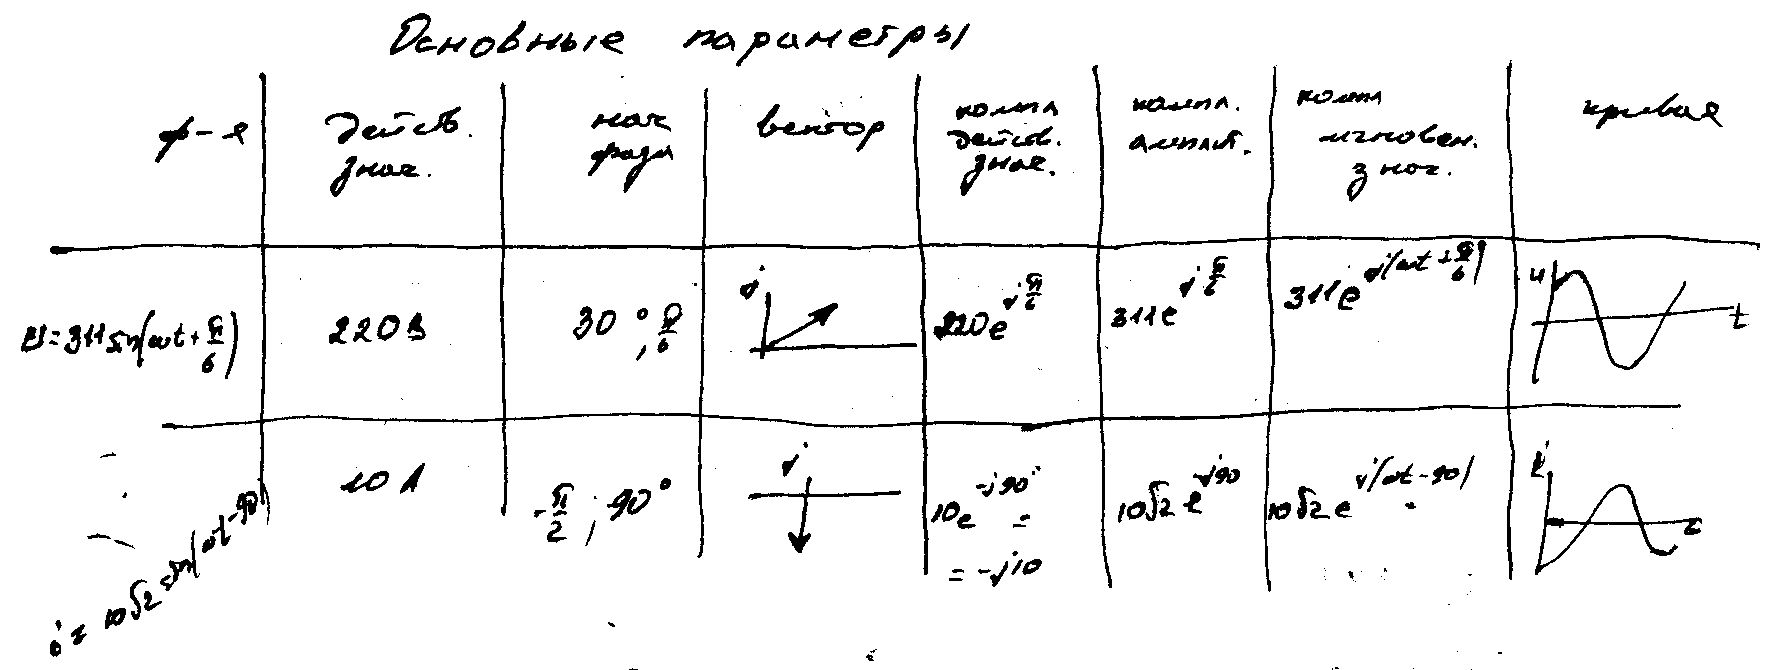 Основные параметры
ф-я
действ.
знач.
нач
фаза
вектор
компл
действ.
знач.
компл.
амплит.
компл
мгновен.
знач.
кривая
u=311sin(ωt+π/6)
220 В
30°; π/6
j
220e^jπ/6
311e^jπ/6
311e^j(ωt+π/6)
u
t
i = 10√2 sin(ωt-90°)
10 А
-π/2; -90°
j
10e^-j90° =
= -j10
10√2 e^-j90
10√2 e^j(ωt-90)
i
t